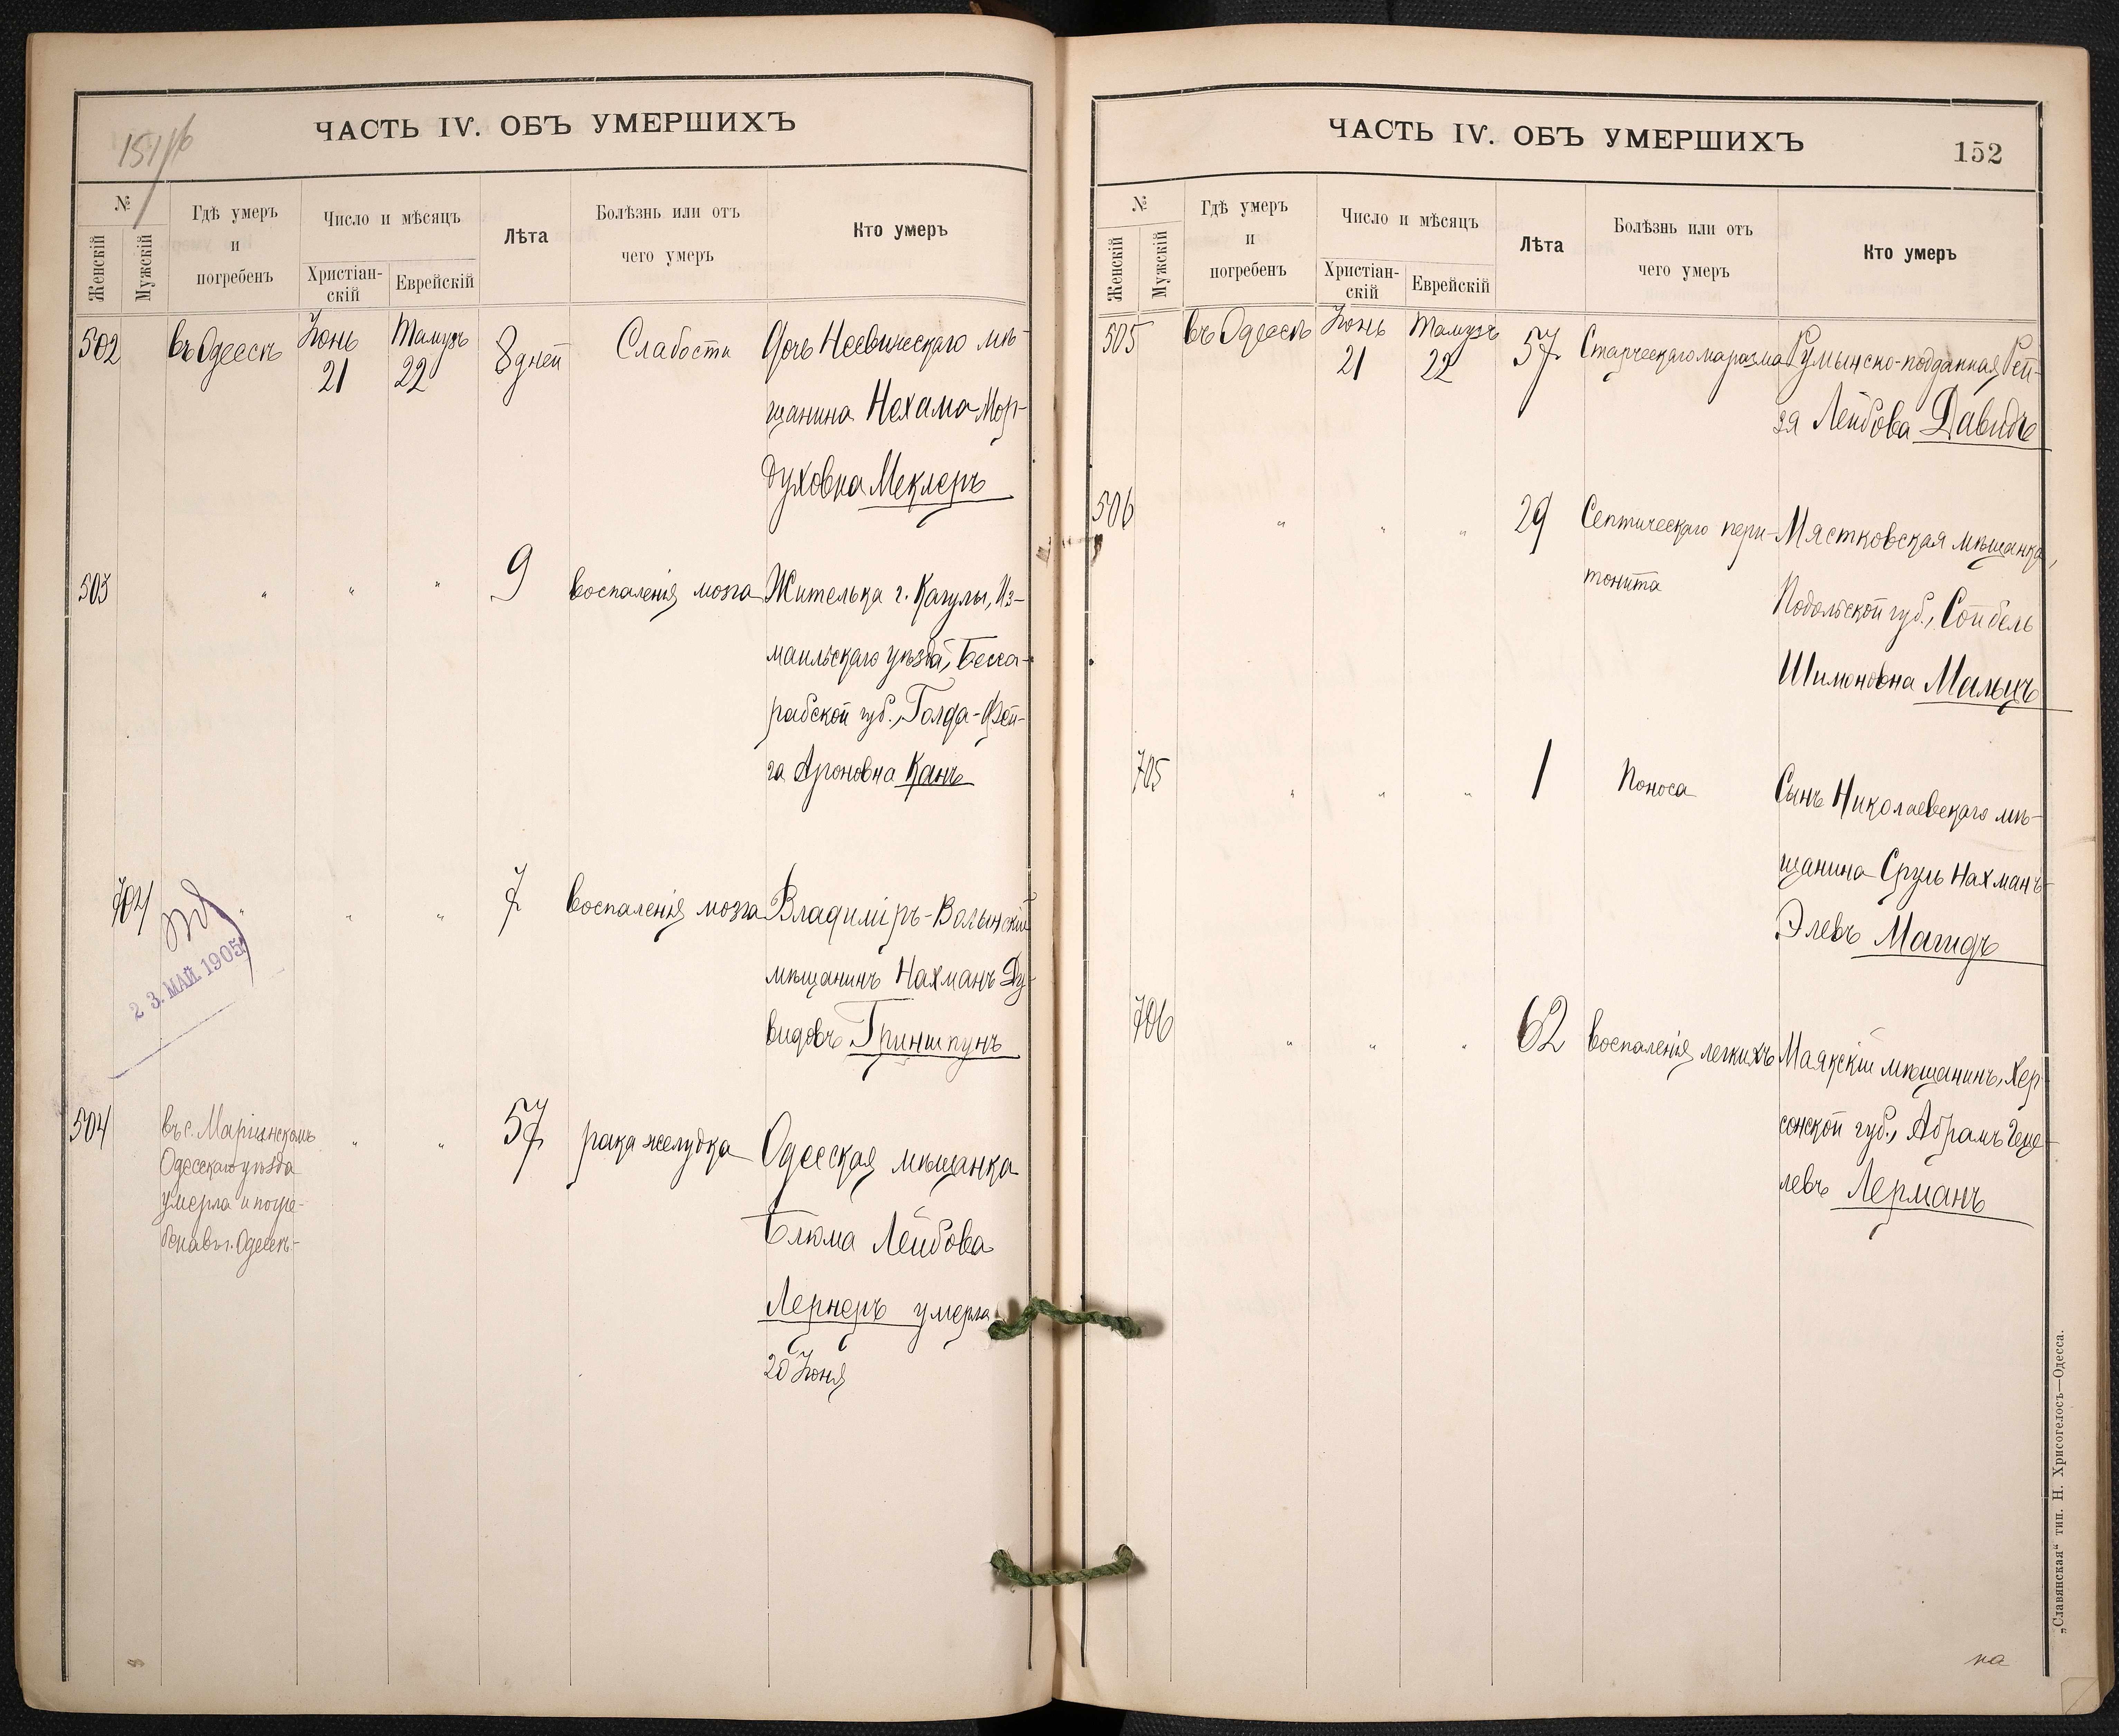 151/16
ЧАСТЬ IV. ОБЪ УМЕРШИХЪ
№
Женскій
Мужскій
Гдѣ умеръ
и
погребенъ
Число и мѣсяцъ
Христіан-
скій
Еврейскій
Лѣта
Болѣзнь или отъ
чего умеръ
Кто умеръ
502 въ Одессѣ Іюнь 21 Тамузъ 22 8 дней Слабости Дочь Несвижскаго мѣ-
щанина Нехама Мор-
духовна Меклеръ
503 " " " 9 воспаленія мозга Жителька г. Кагулы, Из-
маильскаго уѣзда, Бесса-
рабской губ., Голда-Фей-
га Ароновна Канъ
704 " " " 7 воспаленія мозга Владиміръ-Волынскій
мѣщанинъ Нахманъ Ду-
видовъ Гриншпунъ
23. МАЙ 1905
504 въ с. Маріинскомъ " " 57 рака желудка Одесская мѣщанка
Одесскаго уѣзда
умерла и погре-
бена въ г. Одессѣ
Блюма Лейбова
Лернеръ умерла
20 Іюня
ЧАСТЬ IV. ОБЪ УМЕРШИХЪ
152
№
Женскій
Мужскій
Гдѣ умеръ
и
погребенъ
Число и мѣсяцъ
Христіан-
скій
Еврейскій
Лѣта
Болѣзнь или отъ
чего умеръ
Кто умеръ
505 въ Одессѣ Іюнь 21 Тамузъ 22 57 Старческаго маразма Румынско-подданная Рей-
зя Лейбова Давидъ
506 " " " 29 Септическаго пери- Мястковская мѣщанка,
тонита Подольской губ., Сойбель
Шимоновна Мальцъ
705 " " " 1 Поноса Сынъ Николаевскаго мѣ-
щанина Сруль Нахманъ-
Элевъ Магидъ
706 " " " 62 воспаленія легкихъ Маякскій мѣщанинъ, Хер-
сонской губ., Абрамъ Геце-
левъ Лерманъ
„Славянская“ тип. Н. Хрисогелосъ—Одесса.
на